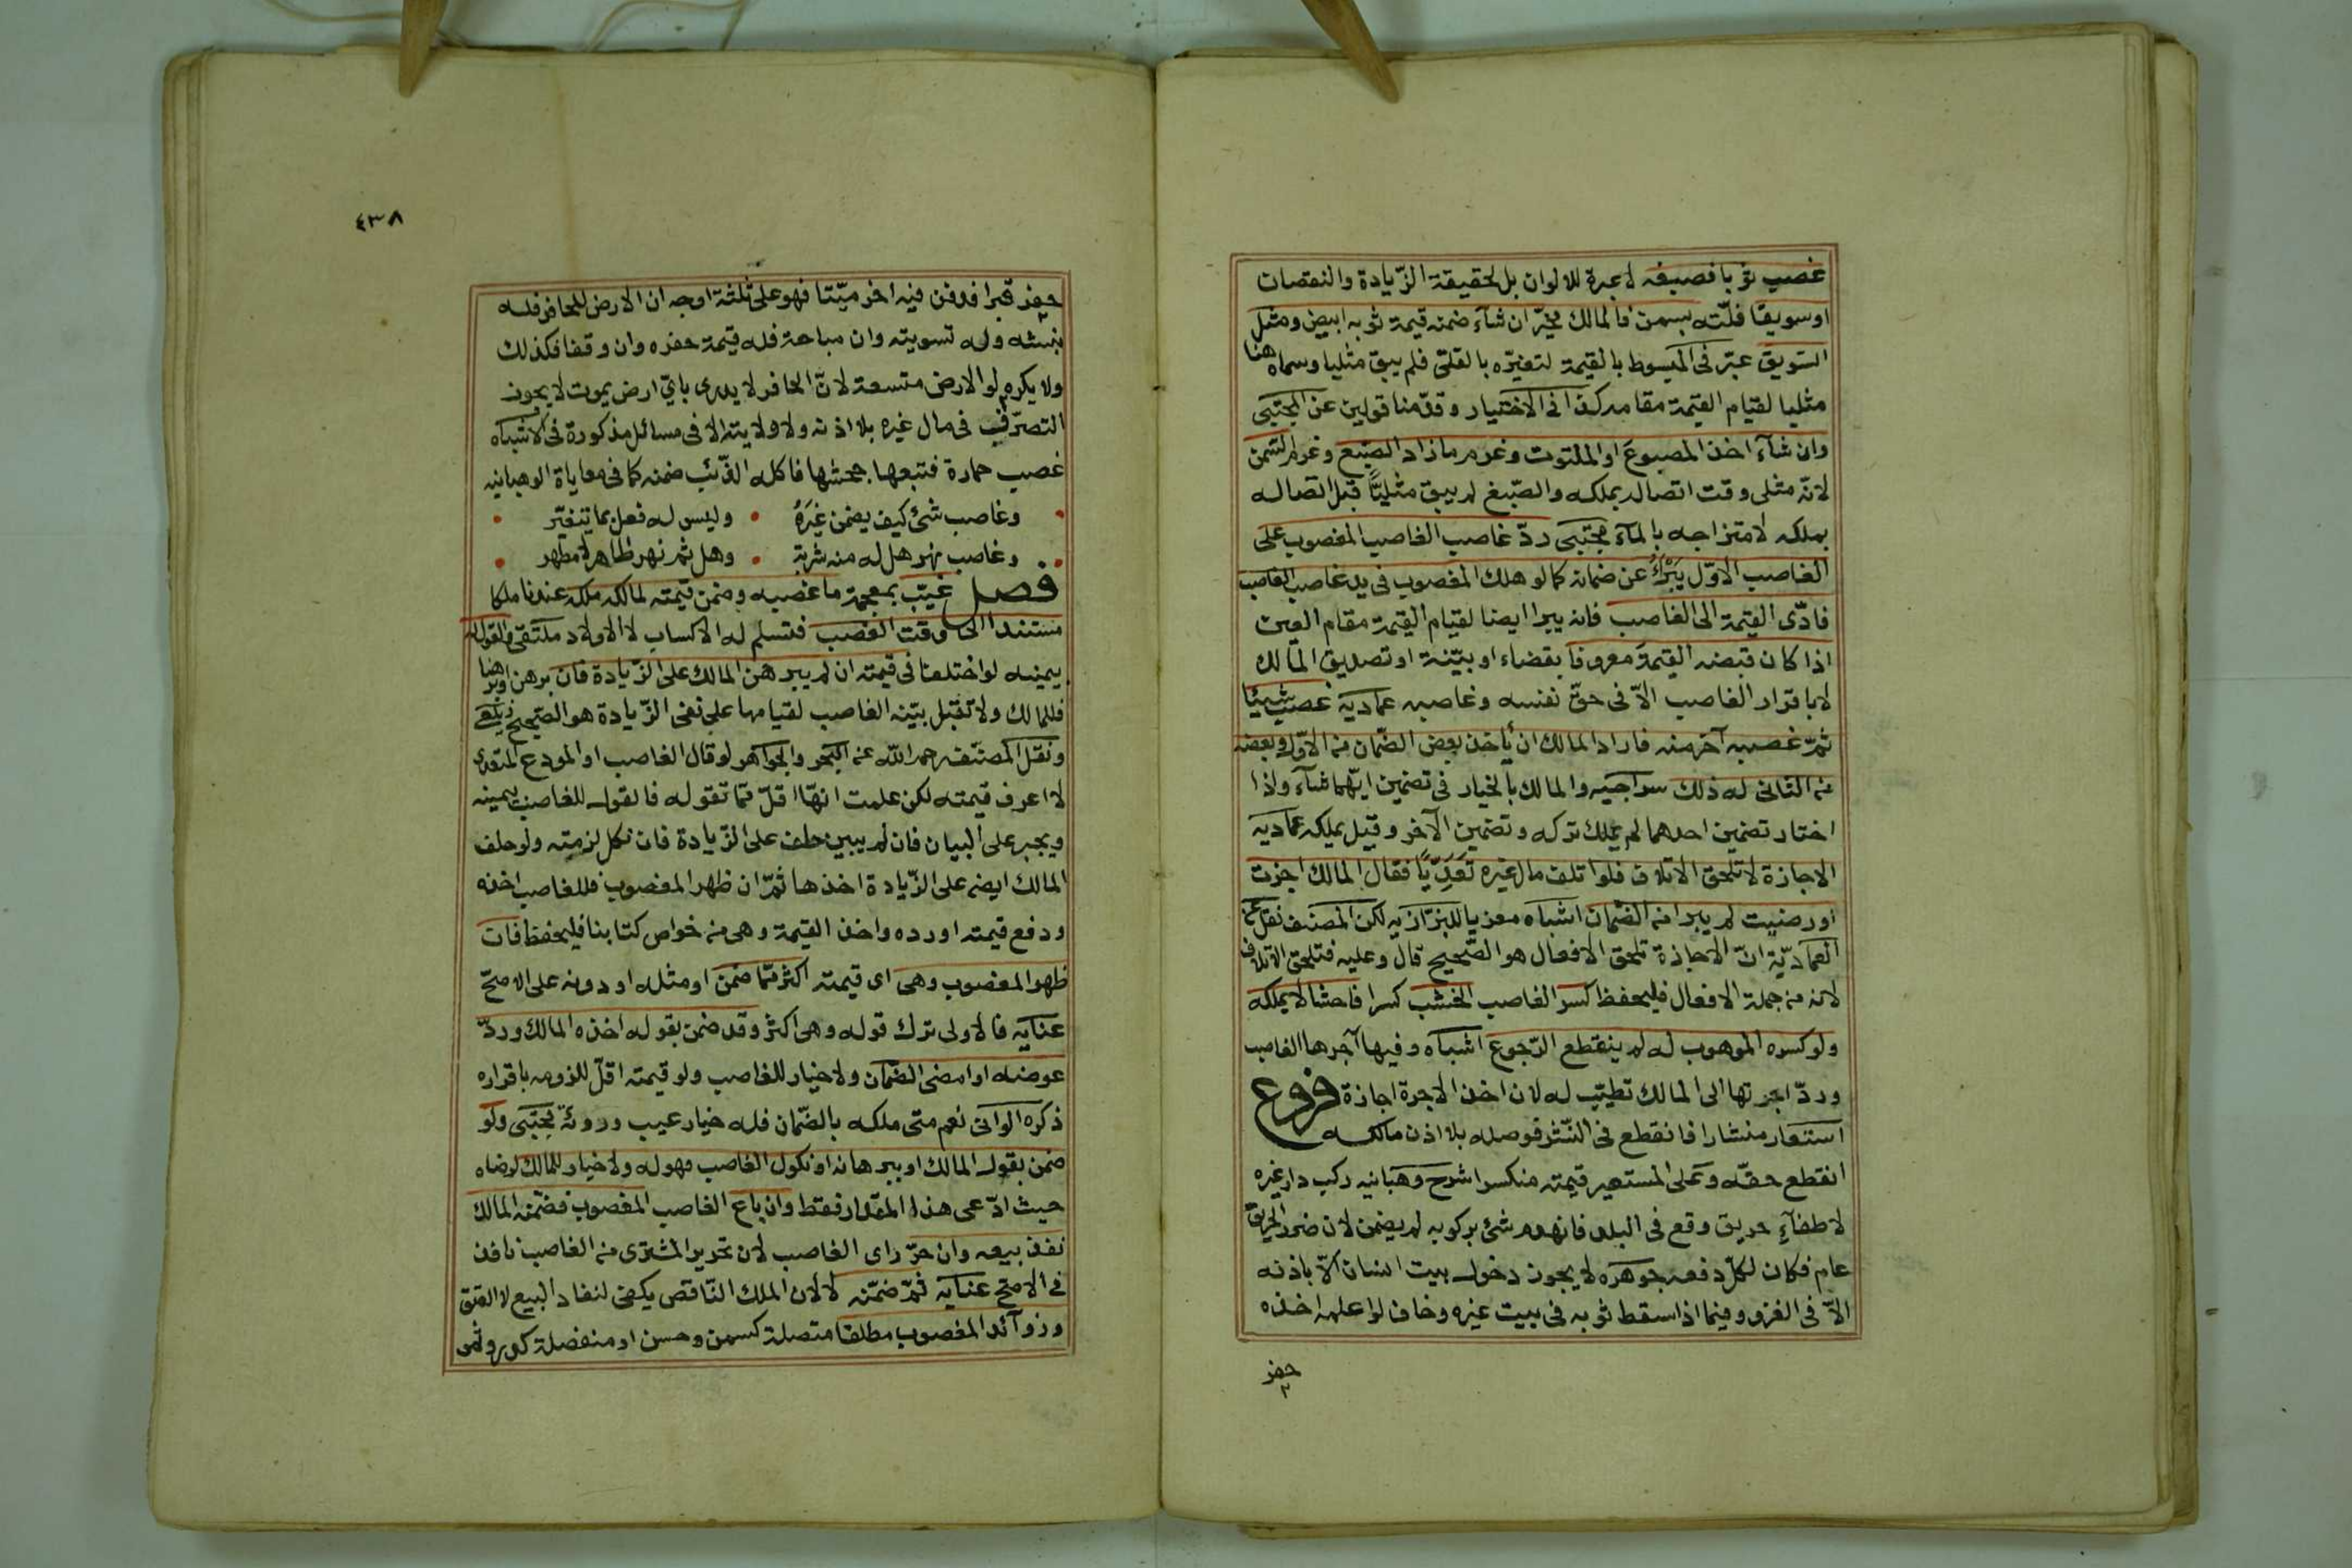 غصب ثوبا فصبغه لا عبرة للالوان بل لحقيقة الزّيادة والنقصان
او سويقا فلتّه بسمن فالمالك مخيّر ان شآء ضمنه قيمة ثوبه ابيض ومثل
السّويق عبّر فى المبسوط بالقيمة لتغيّره بالقلىّ فلم يبق مثليا وسماه هنا
مثليا لقيام القيمة مقامه كذا فى الاختيار وقدّمنا قولين عن المجتبى
وان شآء اخذ المصبوغ او الملتوت وغرم ما زاد الصّبغ وغرم السّمن
لانّه مثلى وقت اتصاله بملكه والصّبغ لم يبق مثليّا قبل اتصاله
بملكه لامتزاجه بالمآء مجتبى ردّ غاصب الغاصب المغصوب على
الغاصب الاوّل يبرأ عن ضمانه كما لو هلك المغصوب فى يد غاصب الغاصب
فادّى القيمة الى الغاصب فانه يبرا ايضا لقيام القيمة مقام العين
اذا كان قبضه القيمة معروفا بقضاء او ببيّنة او تصديق المالك
لا باقرار الغاصب الاّ فى حقّ نفسه وغاصبه عمادية غصب شيئا
ثمّ غصبه آخر منه فاراد المالك ان يأخذ بعض الضّمان من الاوّل وبعضه
من الثانى له ذلك سراجيه والمالك بالخيار فى تضمين ايّهما شآء واذا
اختار تضمين احدهما لم يملك تركه وتضمين الآخر وقيل يملكه عماديه
الاجازة لا تلحق الاتلاف فلو اتلف مال غيره تعدّيا فقال المالك اجزت
او رضيت لم يبرا من الضّمان اشباه معزيا للبزّازيه لكن المصنف نقل عن
العماديّة انّ الاجازة تلحق الافعال هو الصّحيح قال وعليه فتلحق الاتلاف
لانه من جملة الافعال فليحفظ كسر الغاصب الخشب كسرا فاحشا لا يملكه
ولو كسره الموهوب له لم ينقطع الرّجوع اشباه وفيها آجرها الغاصب
وردّ اجرتها الى المالك تطيب له لان اخذ الاجرة اجازة فروع
استعار منشارا فانقطع فى النّشر فوصله بلا اذن مالكه
انقطع حقّه وعلى المستعير قيمته منكسرا شرح وهبانيه ركب دار غيره
لاطفآء حريق وقع فى البلد فانهدم شئ بركوبه لم يضمن لان ضرر الحريق
عام فكان لكلّ دفعه جوهره لا يجوز دخول بيت انسان الاّ باذنه
الاّ فى الغزو وفيما اذا سقط ثوبه فى بيت غيره وخاف لو اعلمه اخذه
حفر
٤٣٨
حفر قبرا فدفن فيه اخر ميّتا فهو على ثلثة اوجه ان الارض للحافر فله
نبشه وله تسويته وان مباحة فله قيمة حفره وان وقفا فكذلك
ولا يكره لو الارض متسعة لانّ الحافر لا يدرى باىّ ارض يموت لا يجوز
التصرّف فى مال غيره بلا اذنه ولا ولايته الا فى مسائل مذكورة فى الاشباه
غصب حمارة فتبعها جحشها فاكله الذّئب ضمنه كما فى معاياة الوهبانيه
وغاصب شئ كيف يضمن غيرهُ وليس له فعل بما يتغيّر
وغاصب نهر هل له منه شربة وهل ثمّ نهر طاهر لا مطهر
فصل غيّب بمعجمة ما غصبه وضمن قيمته لمالكه ملكه عندنا ملكا
مستندا الى وقت الغصب فتسلم له الاكساب لا الاولاد ملتقى والقول له
بيمينه لو اختلفا فى قيمته ان لم يبرهن المالك على الزّيادة فان برهن او برهنا
فللمالك ولا تقبل بيّنة الغاصب لقيامها على نفى الزّيادة هو الصّحيح زيلعى
ونقل المصنّف رحمه اللّه عن البحر والجواهر لو قال الغاصب او المودع المتعدى
لا اعرف قيمته لكن علمت انهّا اقلّ ممّا تقوله فالقول للغاصب بيمينه
ويجبر على البيان فان لم يبين حلف على الزّيادة فان نكل لزمته ولو حلف
المالك ايضه على الزّيادة اخذها ثمّ ان ظهر المغصوب فللغاصب اخذه
ودفع قيمته او رده واخذ القيمة وهى من خواص كتابنا فليحفظ فان
ظهر المغصوب وهى اى قيمته اكثر ممّا ضمن او مثله او دونه على الاصحّ
عنايه فالاولى ترك قوله وهى اكثر وقد ضمن بقوله اخذه المالك وردّ
عوضه او امضى الضّمان ولا خيار للغاصب ولو قيمته اقلّ للزومه باقراره
ذكره الوانى نعم متى ملكه بالضّمان فله خيار عيب ورؤية مجتبى ولو
ضمن بقول المالك او ببرهانه او نكول الغاصب فهو له ولا خيار للمالك لرضاه
حيث ادّعى هذا المقدار فقط وان باع الغاصب المغصوب فضمّنه المالك
نفذ بيعه وان حرّره اى الغاصب لان تحرير المشترى من الغاصب نافذ
فى الاصحّ عنايه ثمّ ضمّنه لا لان الملك النّاقص يكفى لنفاذ البيع لا العتق
وزوآئد المغصوب مطلقا متصلة كسمن وحسن او منفصلة كدر وثمر